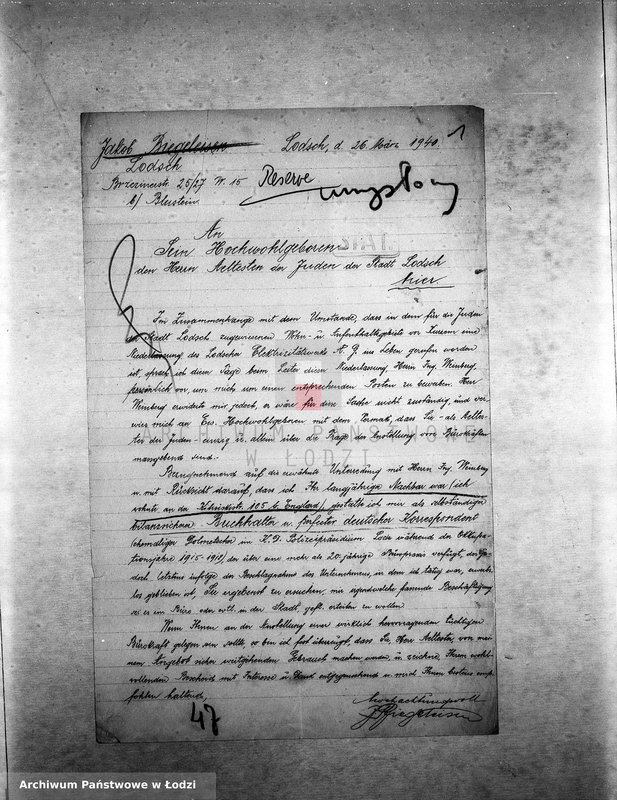 Jakob Bregeleisen
Lodsch, d. 26 März 1940.
1
Lodsch
Brzezinerstr. 25/27 W. 15
b/ Blustein
Reserve
umysłowy
An
Sein Hochwohlgeboren
den Herrn Aeltesten der Juden der Stadt Lodsch
hier.
Im Zusammenhange mit dem Umstande, dass in dem für die Juden
der Stadt Lodsch zugewiesenen Wohn- u. Aufenthaltsgebiete vor kurzem eine
Niederlassung des Lodscher Elektrizitätswerks A. G. ins Leben gerufen worden
ist, sprach ich dieser Tage beim Leiter dieser Niederlassung, Herrn Ing. Weinberg,
persönlich vor, um mich um einen entsprechenden Posten zu bewerben. Herr
Weinberg erwiderte mir jedoch, er wäre für diese Sache nicht zuständig, und ver-
wies mich an Ew. Hochwohlgeboren mit dem Vermerk, dass Sie - als Aeltes-
ter der Juden - einzig u. allein über die Frage der Anstellung von Bürokräften
massgebend sind.
Bezugnehmend auf die erwähnte Unterredung mit Herrn Ing. Weinberg
u. mit Rücksicht darauf, dass ich Ihr langjähriger Nachbar war (ich
wohnte an der 105 b. Englard), gestatte ich mir als selbständiger
bilanzsicherer Buchhalter u. perfekter deutscher Korespondent
(ehemaliger Dolmetscher im K. D. Polizeipräsidium Lodz während der Okkupa-
tionsjahre 1915-1918), der über eine mehr als 20-jährige Büropraxis verfügt, der
jedoch letztens infolge der Beschlagnahme des Unternehmens, in dem ich tätig war, erwerbs-
los geblieben ist, Sie ergebenst zu ersuchen, mir irgendwelche passende Beschäftigung
sei es im Büro oder evtl. in der Stadt gefl. erteilen zu wollen.
Wenn Ihnen an der Anstellung einer wirklich hervorragenden tüchtigen
Bürokraft gelegen sein sollte, so bin ich fest überzeugt, dass Sie, Herr Aeltester, von mei-
nem Angebot sicher weitgehenden Gebrauch machen werden, u. zeichne, Ihrem wohl-
wollenden Bescheid mit Interesse u. Dank entgegensehend u. mich Ihnen bestens emp-
fohlen haltend,
hochachtungsvoll
JBregeleisen
47
ARCHIWUM PAŃSTWOWE
W ŁODZI
Archiwum Państwowe w Łodzi